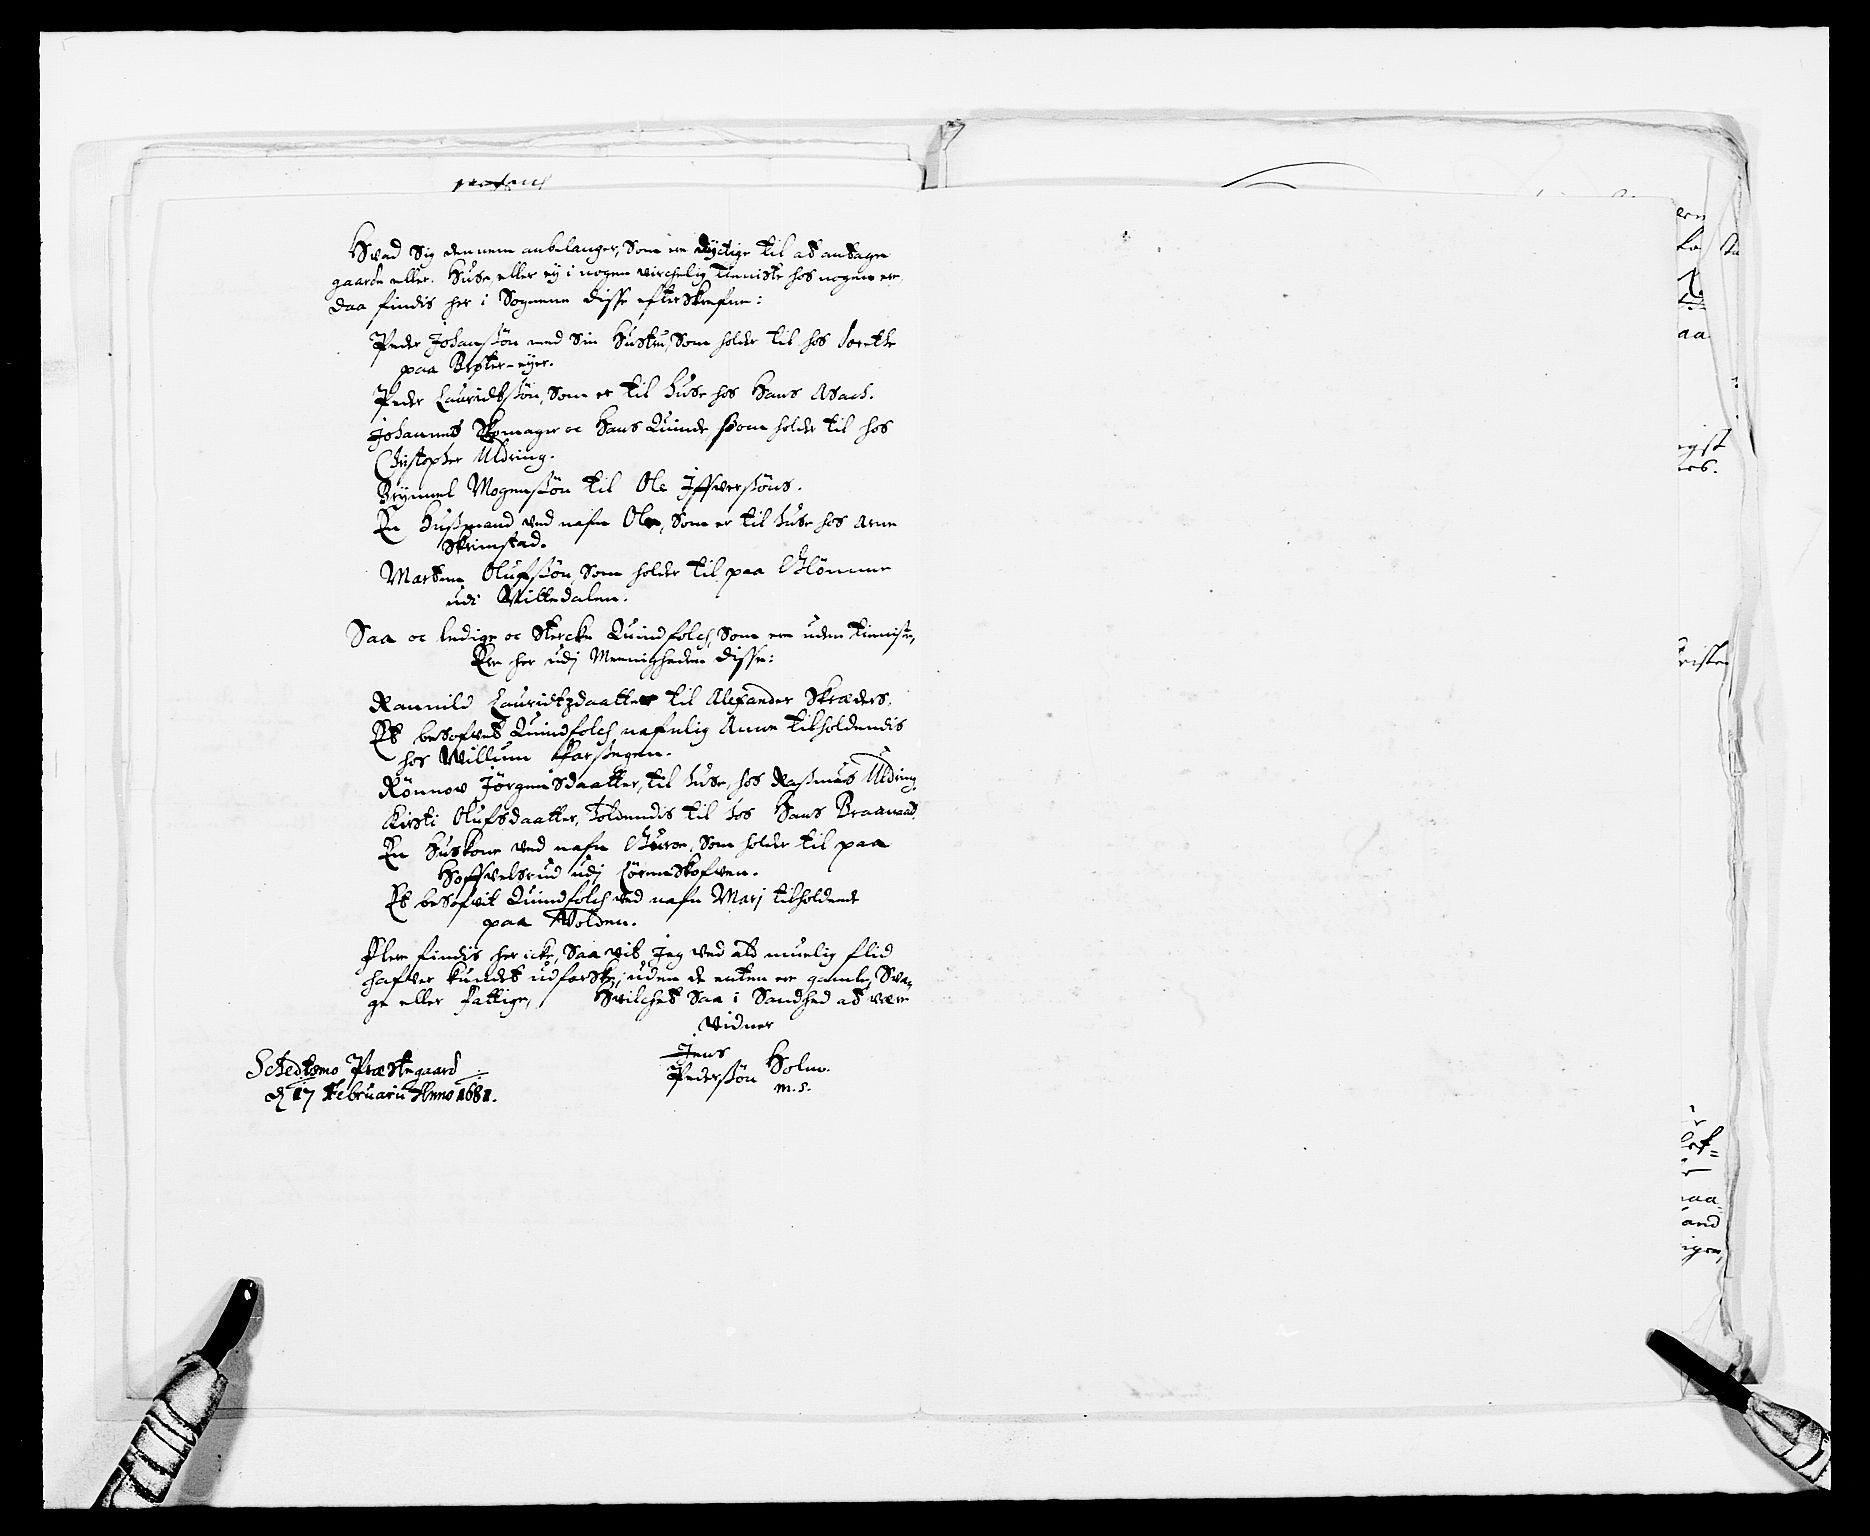 Hvad Sig dennem anbelanger, Som ere dyctige til at antage
gaarde eller Huse, eller ey i nogen virchelig tienniste hos nogen ere,
daa findis her i Sognene disse efterskrefne:
Peder Johanssøn med Sin Hustru, Som holder til hos Joreth
paa Røster-eyer.
Peder Lauridtssøn, Som er til huse hos Hans Asach.
Johannes Skomager oc Hans Quinde ssom holder til hos
Christopher Uldring.
Brynnel Mogenssøn til Ole Iffverssøns.
En Hussmand ved nafn Ole, Som er til huse hos Arne
Skrimstad.
Marthen Olufssøn, Som holder til paa Blømmer
udi Wittedalen.
Saa oc ledige oc Stercke Quindfolch, Som ere uden tieniste,
Ere her udj Meenigheden disse:
Rannild Lauridtzdaatter til Alexander Skræders.
Et besofvet Quindfolch nafnlig Anne tilholdendis
hos Willum Farssegen.
Rønnov Jørgensdaatter, til huse, hos Rassmus Uldring.
Kirsti Olufsdaatter, holdendis til hos Hans Braanaas.
En Huskone ved nafn Guroe, Som holder til paa
Hoffvelsrud udj Lørenskofven.
Et besofvit Quindfolch ved nafn Marj tilholdende
paa Wolden.
Flere findis her icke, Saa vit Jeg ved ald muelig flid
hafver kundet udforske, uden de enten ere gamle, Sva-
ge eller fattige, Hvilchet Saa i Sandhed at være
vidner
Jens
Pederssøn Holm.
m. s.
Schedtsmo Præstegaard
d 17 Februarii Anno 1681.